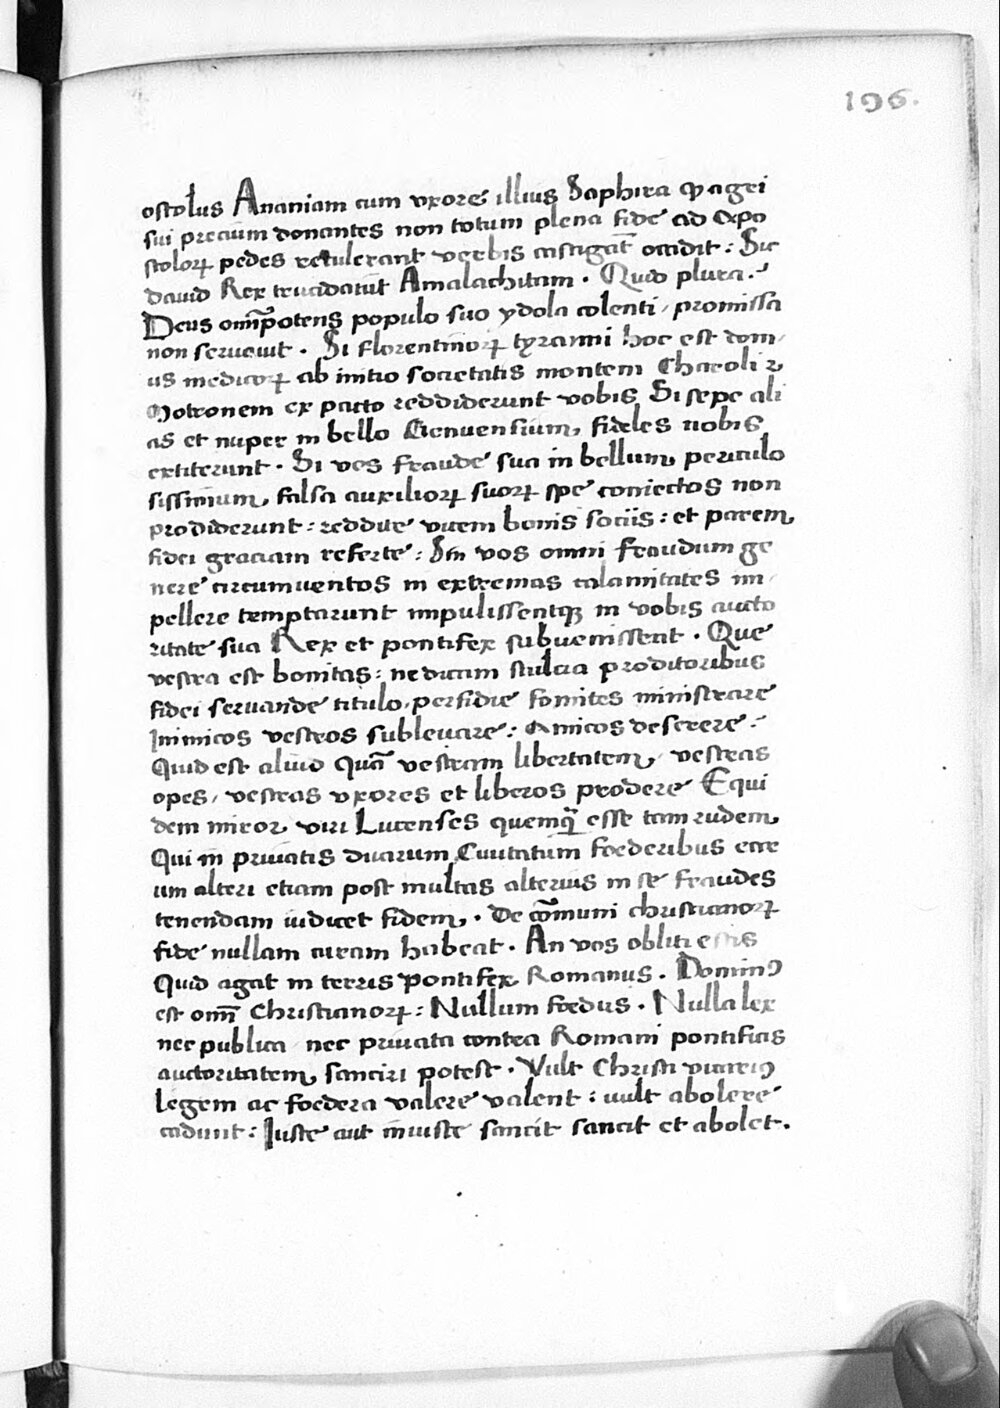 196.
ostolus Ananiam cum vxore illius Saphira ꝙ agri
sui precium donantes non totum plena fide ad Apo
stoloꝝ pedes retulerant verbis castigat̄ occidit : Sic
dauid Rex trucidauit Amalachitam . Quid plura .
Deus omīpotens populo suo ydola colenti / promissa
non seruauit . Si florentinoꝝ tyranni hoc est dom/
us medicoꝝ ab initio societatis montem Charoli ⁊
Motronem ex pacto reddiderunt vobis Si sepe ali
as et nuper in bello Genuensium, fideles nobis
extiterunt . Si vos fraude sua in bellum periculo
sissimum, falsa auxilioꝝ suoꝝ spe coniectos non
prodiderunt : reddite vicem bonis sociis : et parem,
fidei graciam referte : Sin vos omni fraudum ge
nere circumuentos in extremas calamitates im/
pellere temptarunt impulissentqꝫ ni vobis aucto
ritate sua Rex et pontifex subuenissent . Que
vestra est bonitas : ne dicam stulticia proditoribus
fidei seruande titulo, perfidie fomites ministrare
Inimicos vestros subleuare : Amicos deserere :
Quid est aliud quā vestram libertatem, vestras
opes / vestras vxores et liberos prodere Equi
dem miror, viri Lucenses quemq̄ esse tam rudem,
Qui in priuatis duarum Ciuitatum foederibus etre
um alteri etiam post multas alterius in se fraudes
tenendam iudicet fidem, . De cōmuni christianoꝝ
fide nullam curam habeat . An vos obliti estis
Quid agat in terris Pontifex Romanus . Dominꝰ
est omī Christianoꝝ : Nullum foedus . Nulla lex
nec publica nec priuata contra Romani pontificis
auctoritatem, sanciri potest . Vult Christi vicariꝰ
legem ac foedera valere valent : uult abolere
cadunt : Iuste aut iniuste sancit sancit et abolet .